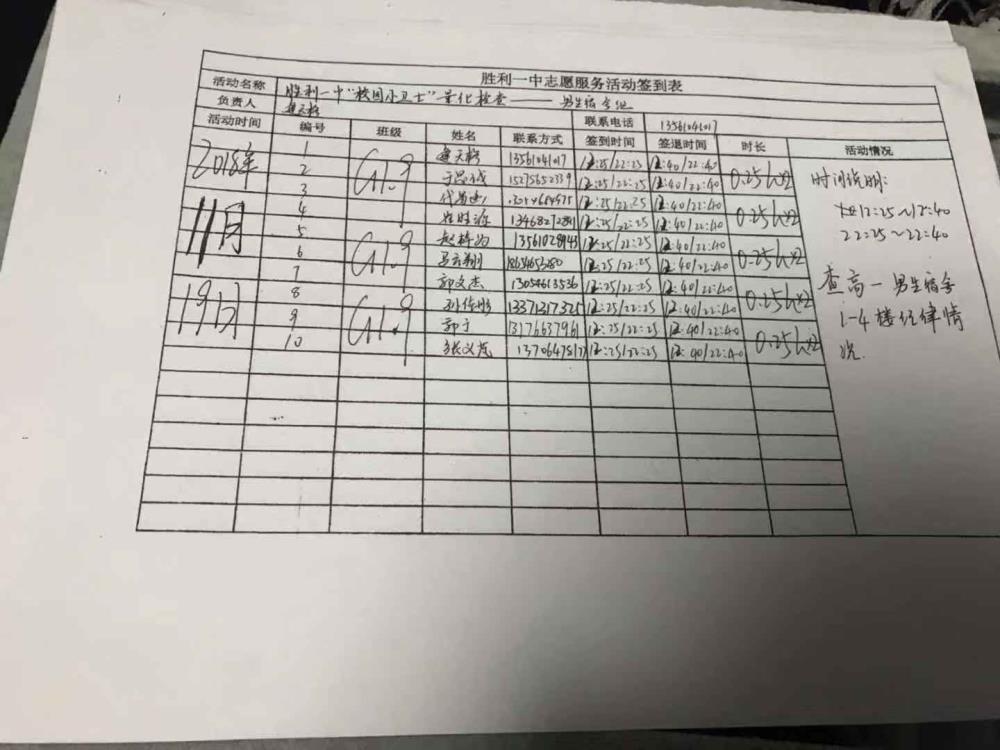 胜利一中志愿服务活动签到表
活动名称 胜利一中“校园小卫士”量化检查——男生宿舍
负责人 联系电话 13561041017
活动时间 编号 班级 姓名 联系方式 签到时间 签退时间 时长 活动情况
2018年 11月 19日
G1.9
G1.9
G1.9
1 13561041017 12:25/22:25 12:40/22:40
2 15275652339 12:25/22:25 12:40/22:40
3 12:25/22:25 12:40/22:40
4 12:25/22:25 12:40/22:40
5 13561028943 12:25/22:25 12:40/22:40
6 马云翔 12:25/22:25 12:40/22:40
7 郭文杰 13054613536 12:25/22:25 12:40/22:40
8 13371317325 12:25/22:25 12:40/22:40
9 郭于 13176637961 12:25/22:25 12:40/22:40
10 12:25/22:25 12:40/22:40
0.25h×2
0.25h×2
0.25h×2
0.25h×2
0.25h×2
时间说明:
12:25～12:40
22:25～22:40
查高一男生宿舍
1-4楼纪律情
况.